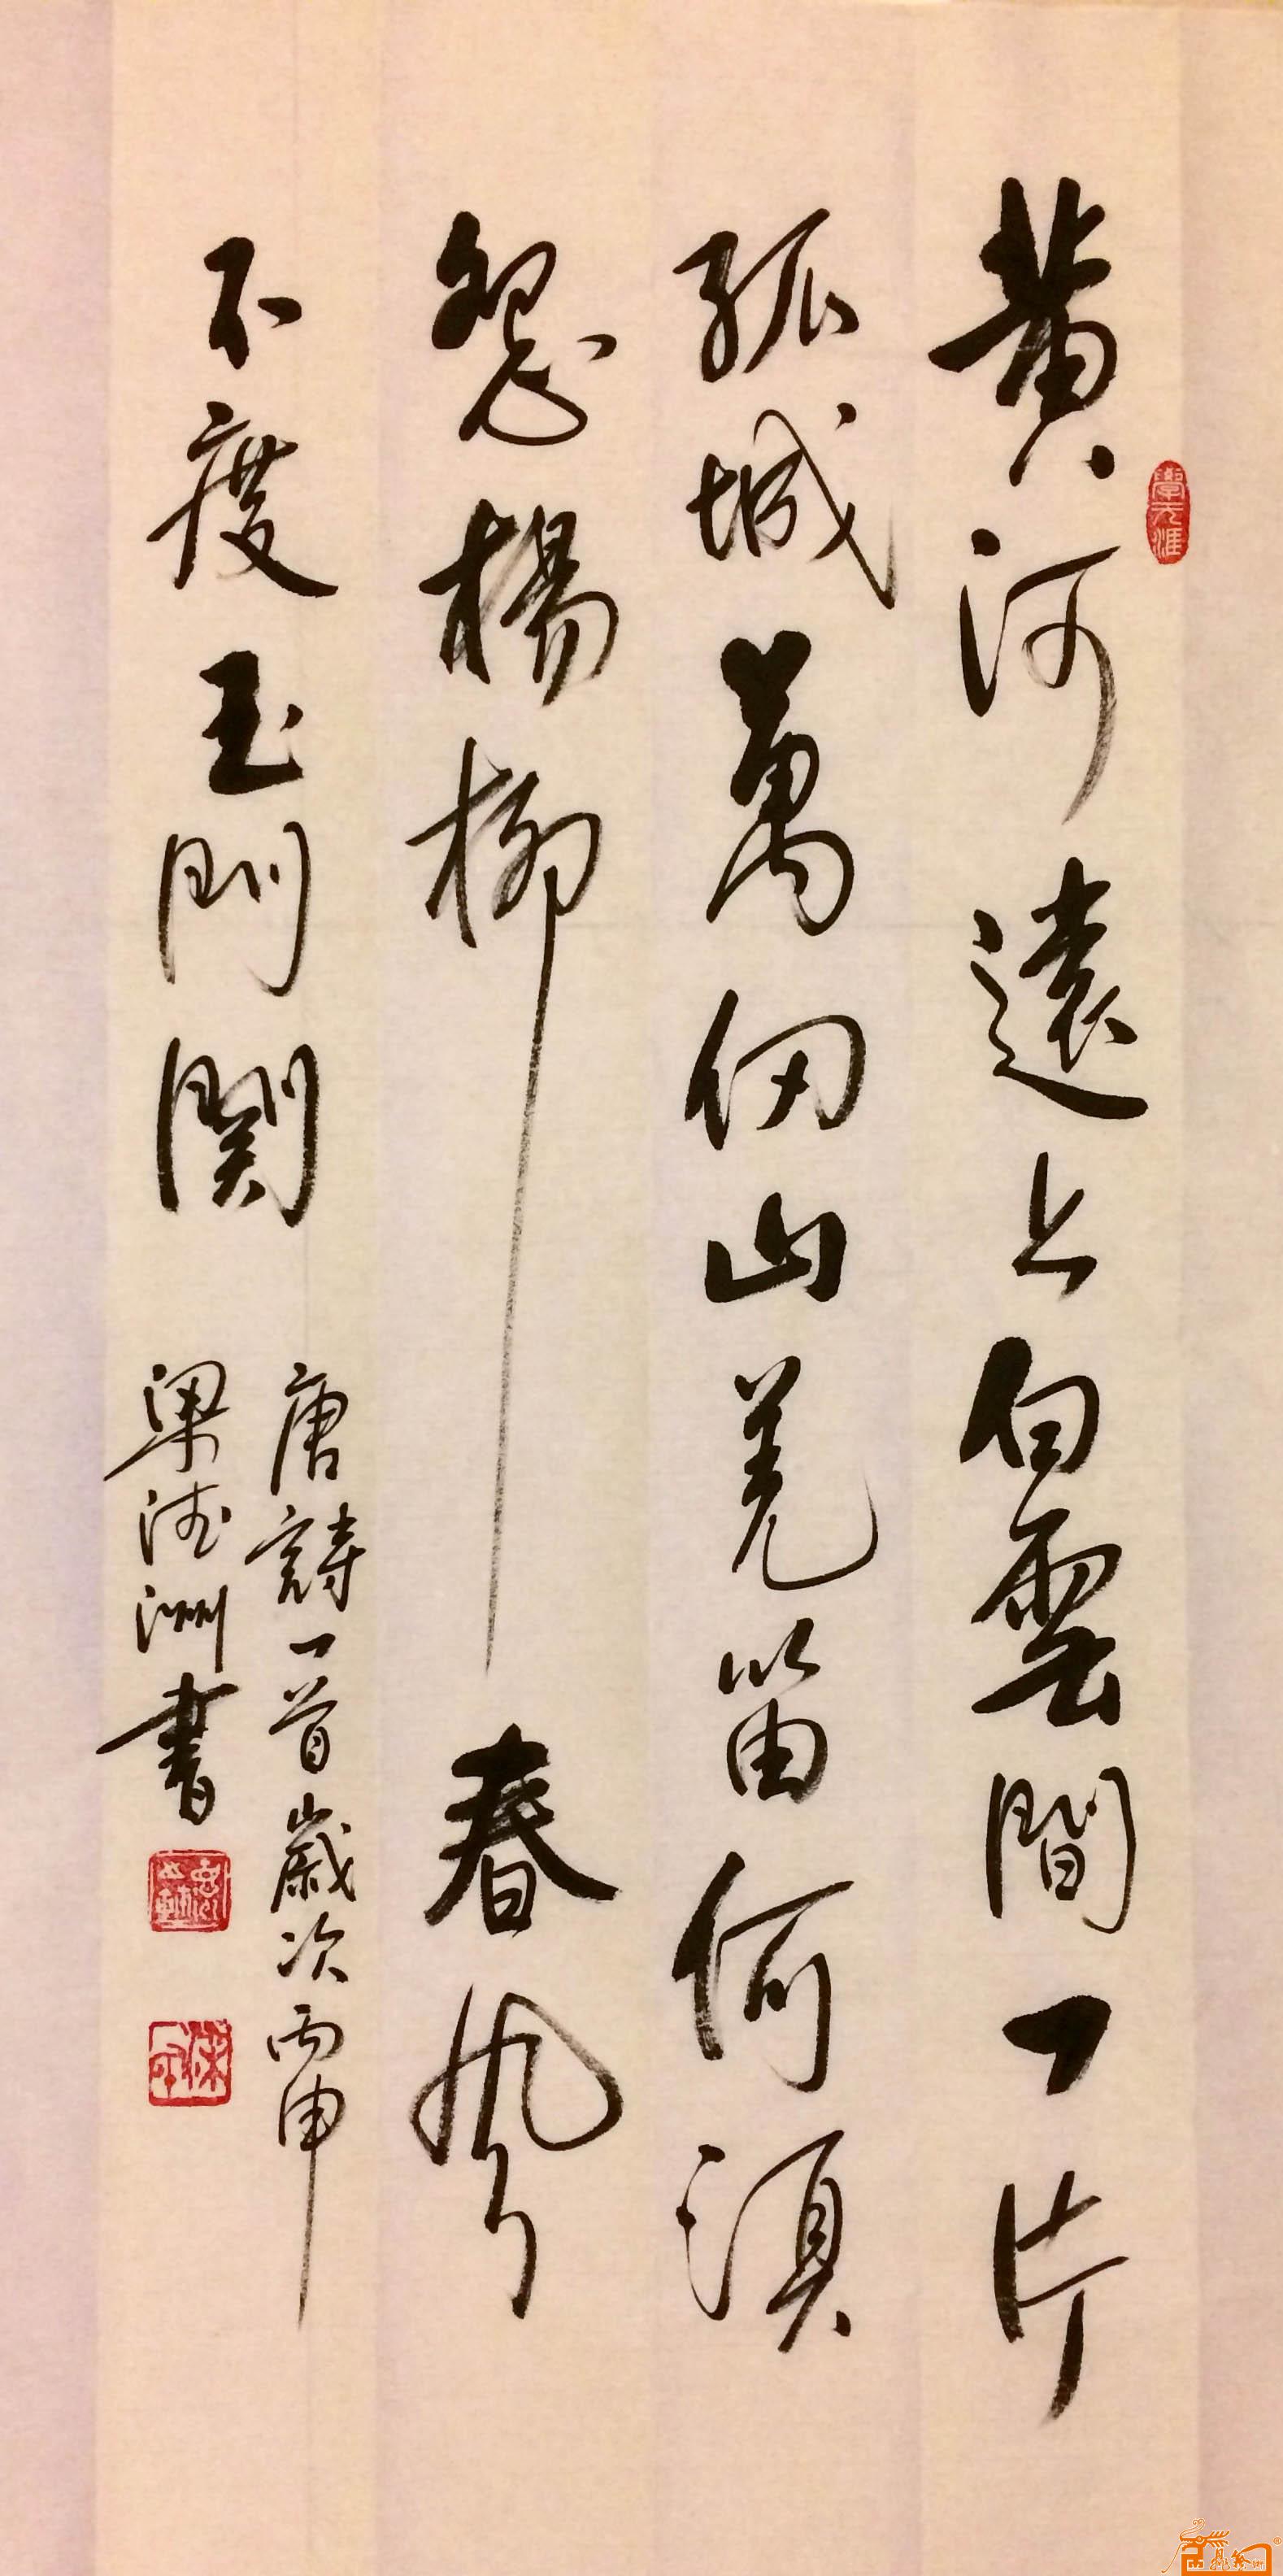 黄河遠上白雲間一片
孤城萬仞山羌笛何須
怨楊柳春風
不度玉門関
唐詩一首歲次丙申
梁德洲書
學无涯